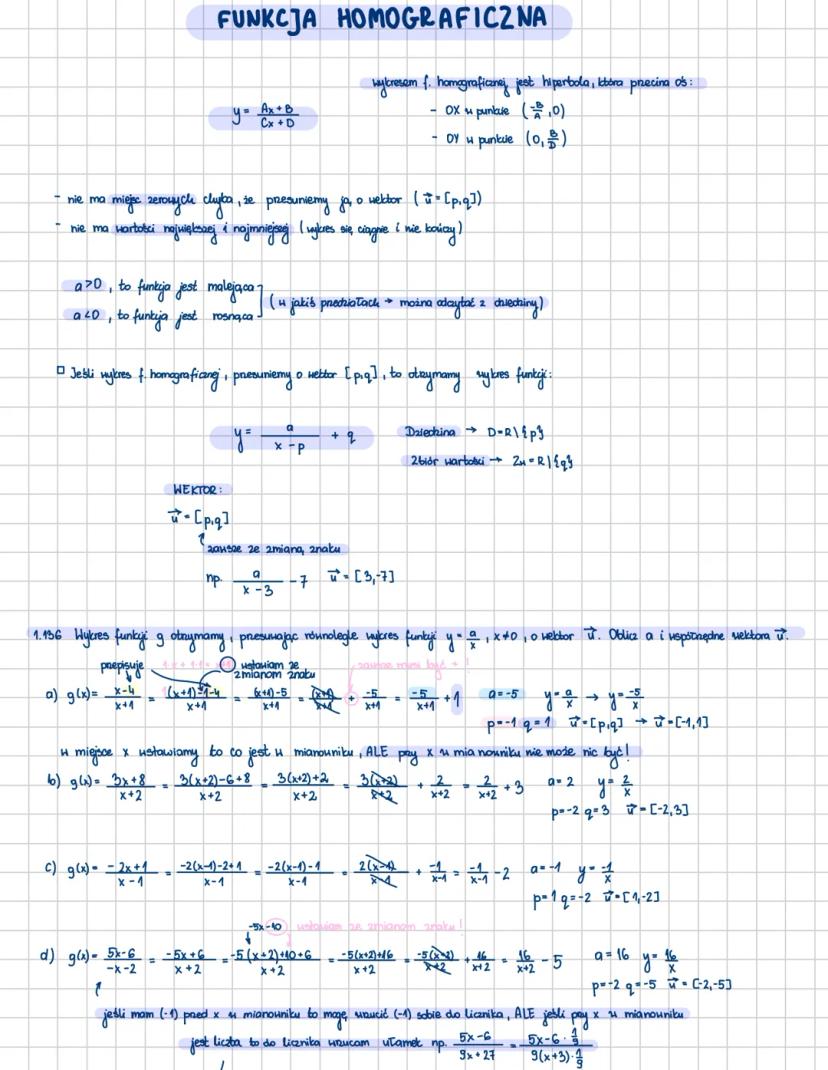 FUNKCJA HOMOGRAFICZNA
wykresem f. homograficznej jest hiperbola, która przecina oś:
y = Ax+B / Cx+D
- OX w punkcie (-B/A, 0)
- OY w punkcie (0, B/D)
- nie ma miejsc zerowych chyba, że przesuniemy ją o wektor (u⃗ = [p,q])
- nie ma wartości największej i najmniejszej (wykres się ciągnie i nie kończy)
a>0, to funkcja jest malejąca
a<0, to funkcja jest rosnąca
(w jakiś przedziałach → można odczytać z dziedziny)
□ Jeśli wykres f. homograficznej, przesuniemy o wektor [p,q], to otrzymamy wykres funkcji:
y = a / x-p + q
Dziedzina → D=R\{p}
Zbiór wartości → Zw=R\{q}
WEKTOR:
u⃗ = [p,q]
zawsze ze zmianą znaku
np. a / x-3 - 7 u⃗ = [3,-7]
1.136 Wykres funkcji g otrzymamy, przesuwając równolegle wykres funkcji y = a/x, x≠0, o wektor u⃗. Oblicz a i współrzędne wektora u⃗.
przepisuje
wstawiam ze zmianom znaku
zawsze musi być + !
a) g(x) = x-4 / x+1 = (x+1)-1-4 / x+1 = (x+1)-5 / x+1 = (x+1) / x+1 + -5 / x+1 = -5 / x+1 + 1 a=-5 y = a/x → y = -5/x
p=-1 q=1 u⃗ = [p,q] → u⃗ = [-1,1]
w miejsce x wstawiamy to co jest w mianowniku, ALE przy x w mianowniku nie może nic być!
b) g(x) = 3x+8 / x+2 = 3(x+2)-6+8 / x+2 = 3(x+2)+2 / x+2 = 3(x+2) / x+2 + 2 / x+2 = 2 / x+2 + 3 a=2 y = 2/x
p=-2 q=3 u⃗ = [-2,3]
c) g(x) = -2x+1 / x-1 = -2(x-1)-2+1 / x-1 = -2(x-1)-1 / x-1 = 2(x-1) / x-1 + -1 / x-1 = -1 / x-1 - 2 a=-1 y = -1/x
p=1 q=-2 u⃗ = [1,-2]
-5x-10 wstawiam ze zmianom znaku!
d) g(x) = 5x-6 / -x-2 = -5x+6 / x+2 = -5(x+2)+10+6 / x+2 = -5(x+2)+16 / x+2 = -5(x+2) / x+2 + 16 / x+2 = 16 / x+2 - 5 a=16 y = 16/x
p=-2 q=-5 u⃗ = [-2,-5]
jeśli mam (-1) przed x w mianowniku to mogę wrzucić (-1) sobie do licznika, ALE jeśli przy x w mianowniku
jest liczba to do licznika wrzucam ułamek np. 5x-6 / 9x+27 = 5x-6 · 1/9 / 9(x+3) · 1/9